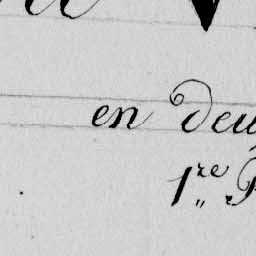 en deu
1.re P